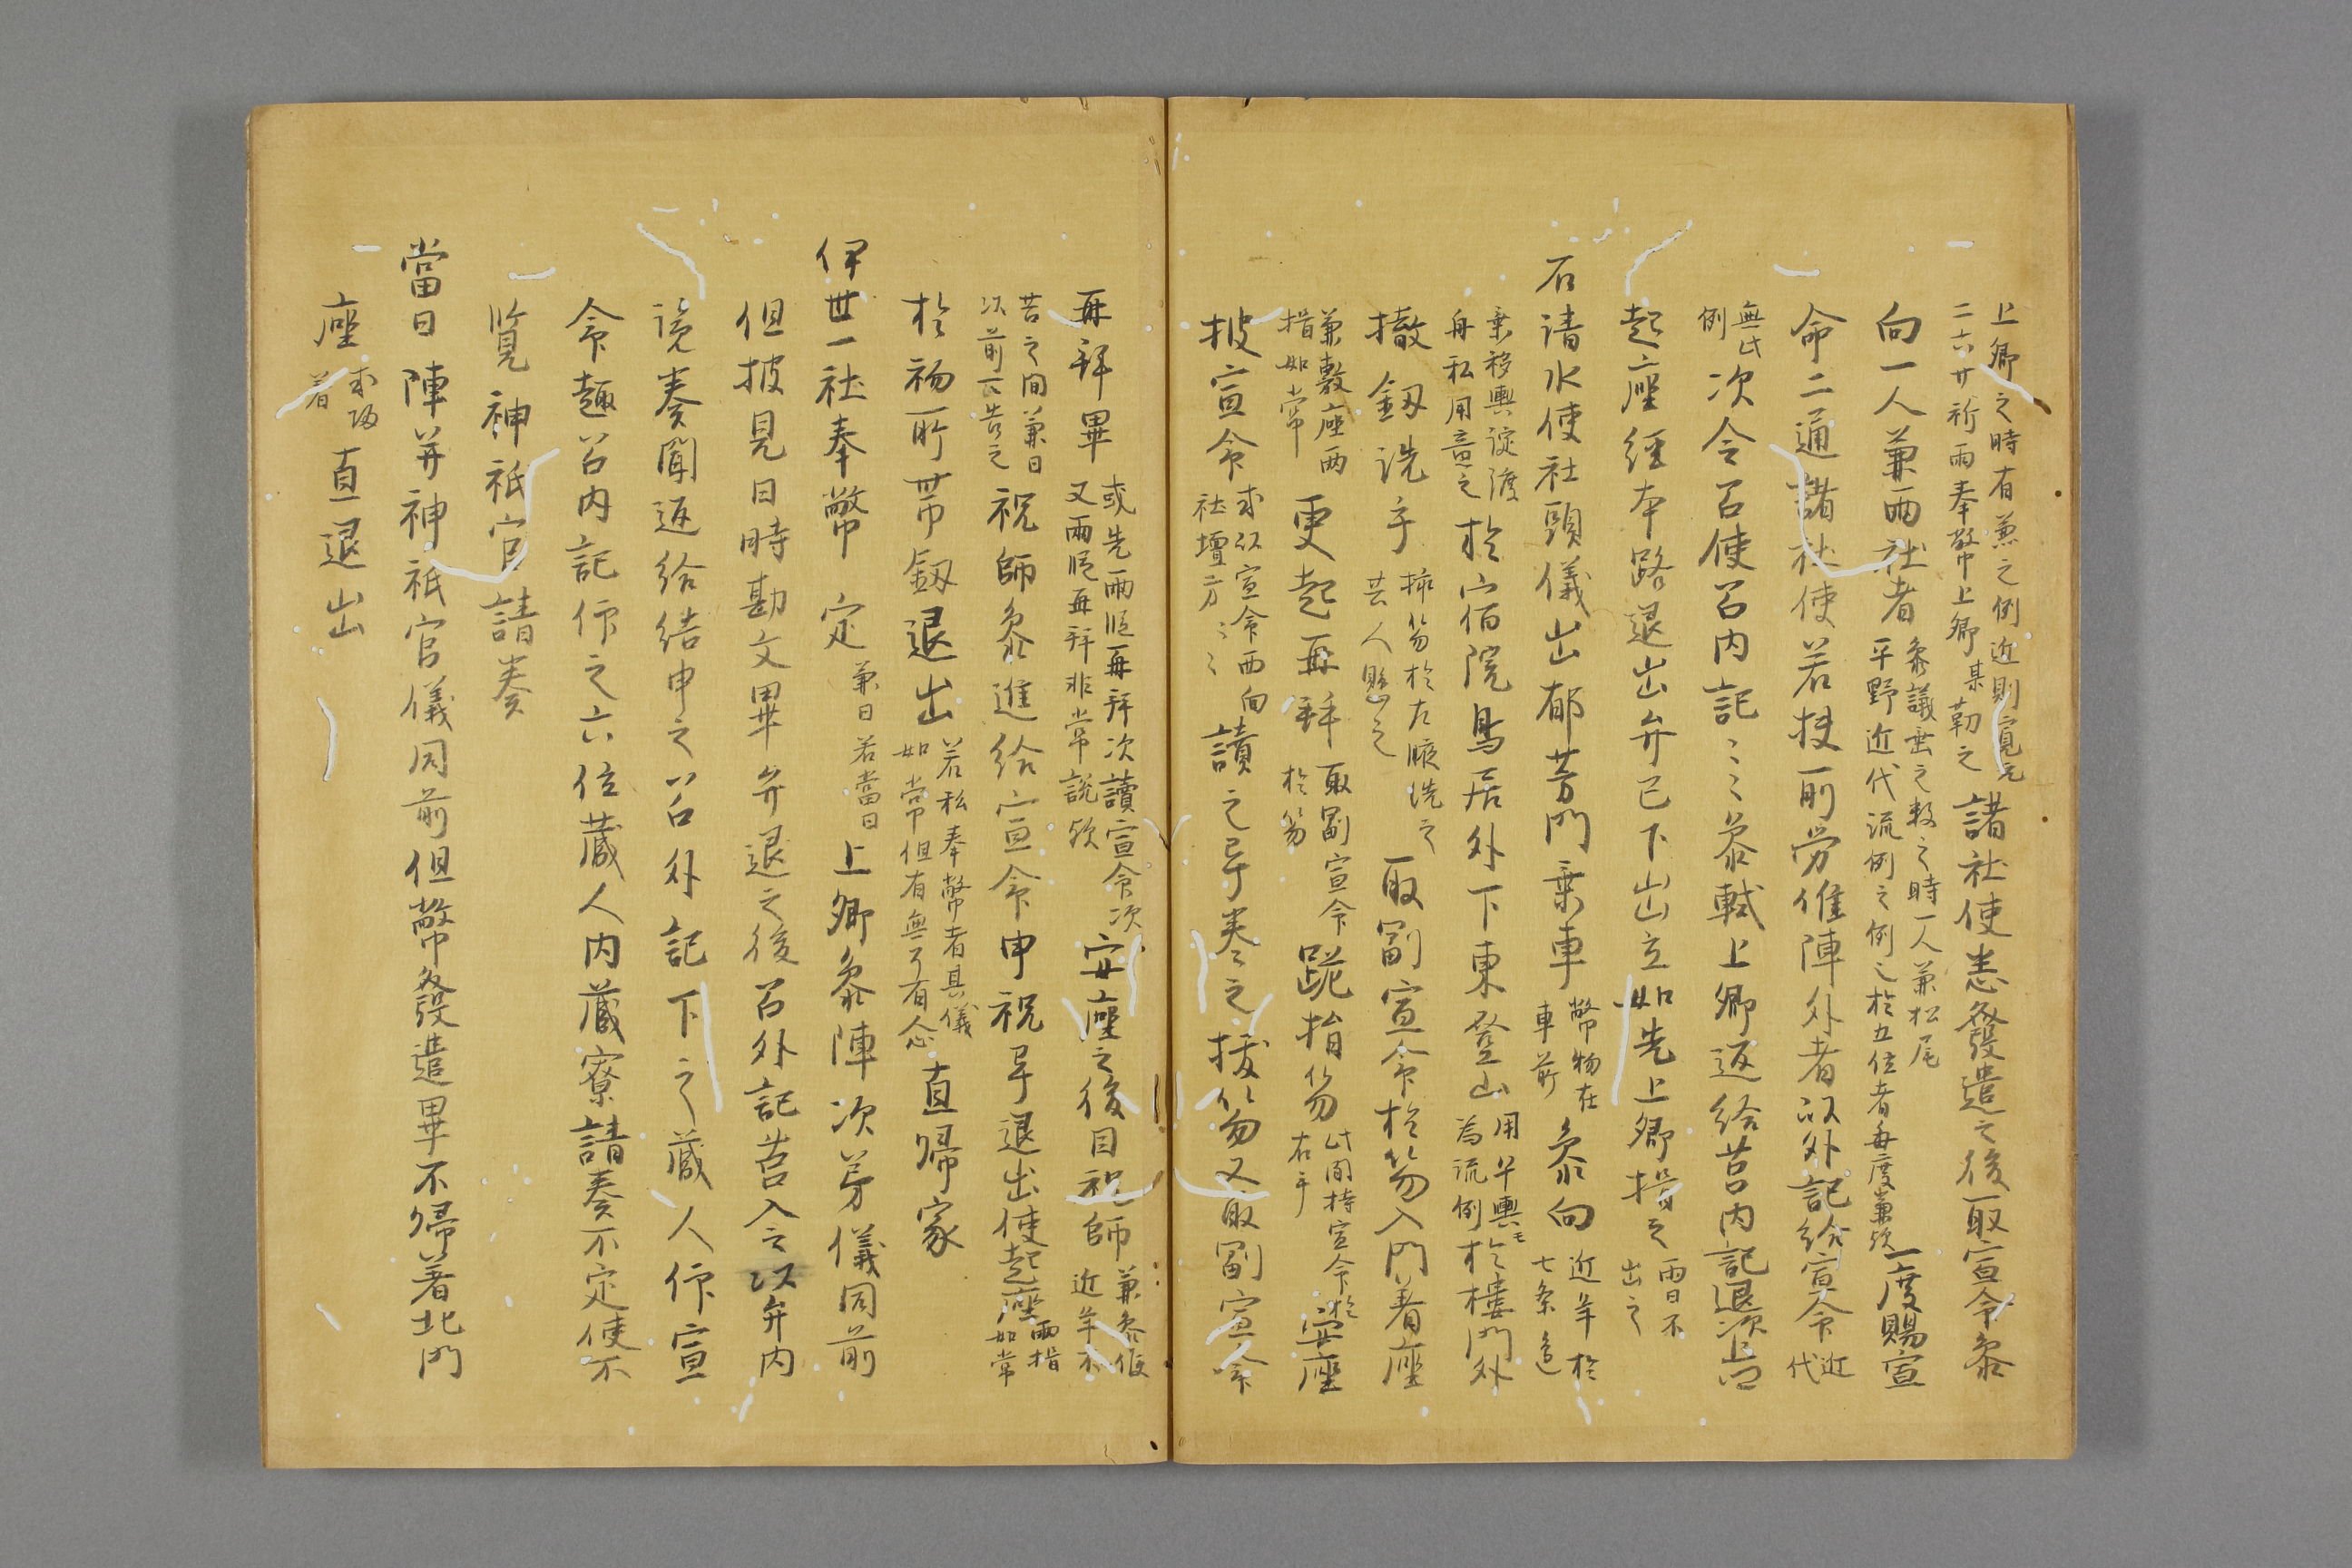 上卿之時有兼之例近則寛元
二六廿祈雨奉幣上卿某勤之諸社使悉發遣之後取宣命參
向一人兼両社者參議無之数之時一人兼松尾
平野近代流例之例之於五位者毎度兼欤一度賜宣
命二通諸社使若投前労催陣外者以外記給宣命近代
無此例次令召使召内記々々參軾上卿返給莒内記退次上卿
起座經本路退出弁已下出立如先上卿揖之雨日不出之
石清水使社頭儀出郁芳門乗車幣物在車前參向近年於七条邊
乗移輿淀渡
舟私用意之於宿院鳥居外下東登山用早輿
為流例於樓門外
撤釼洗手搢笏於左腋洗之
共人懸之取副宣命於笏入門着座
兼敷座両
揖如常更起再拜取副宣命
於笏跪揖笏此間持宣命於
右手安座
披宣命或以宣命西向
社壇方々々讀之畢巻之抜笏又取副宣命
再拜畢或先両段再拜次讀宣命次
又両段再拜非常說欤安座之後目祝師兼參候
近年不
若之間兼日
次前可告之祝師參進給宣命申祝畢退出使起座両揖
如常
於祓所帯釼退出若私奉幣者具儀
如常但有無可有心直歸家
伊世一社奉幣 定兼日若當日上卿參陣次第儀同前
但披見日時勘文畢弁退之後召外記莒入之以弁内
覧奏聞返給結申之召外記下之藏人仰宣
命趣召内記仰之六位藏人内藏寮請奏不定使不
覧神祇官請奏
當日陣并神祇官儀同前但幣發遣畢不歸著北門
座或歸
着直退出